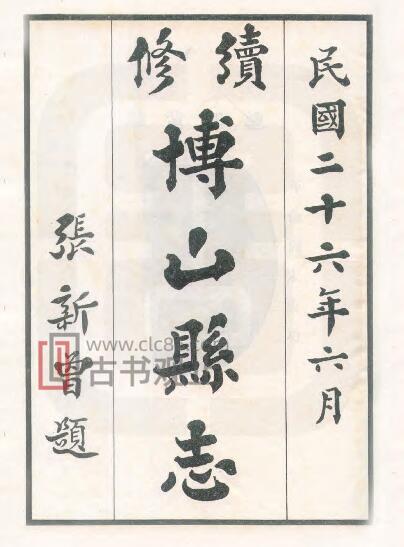 民國二十六年六月
續修
博山縣志
張新曾題
www.clc8
古书